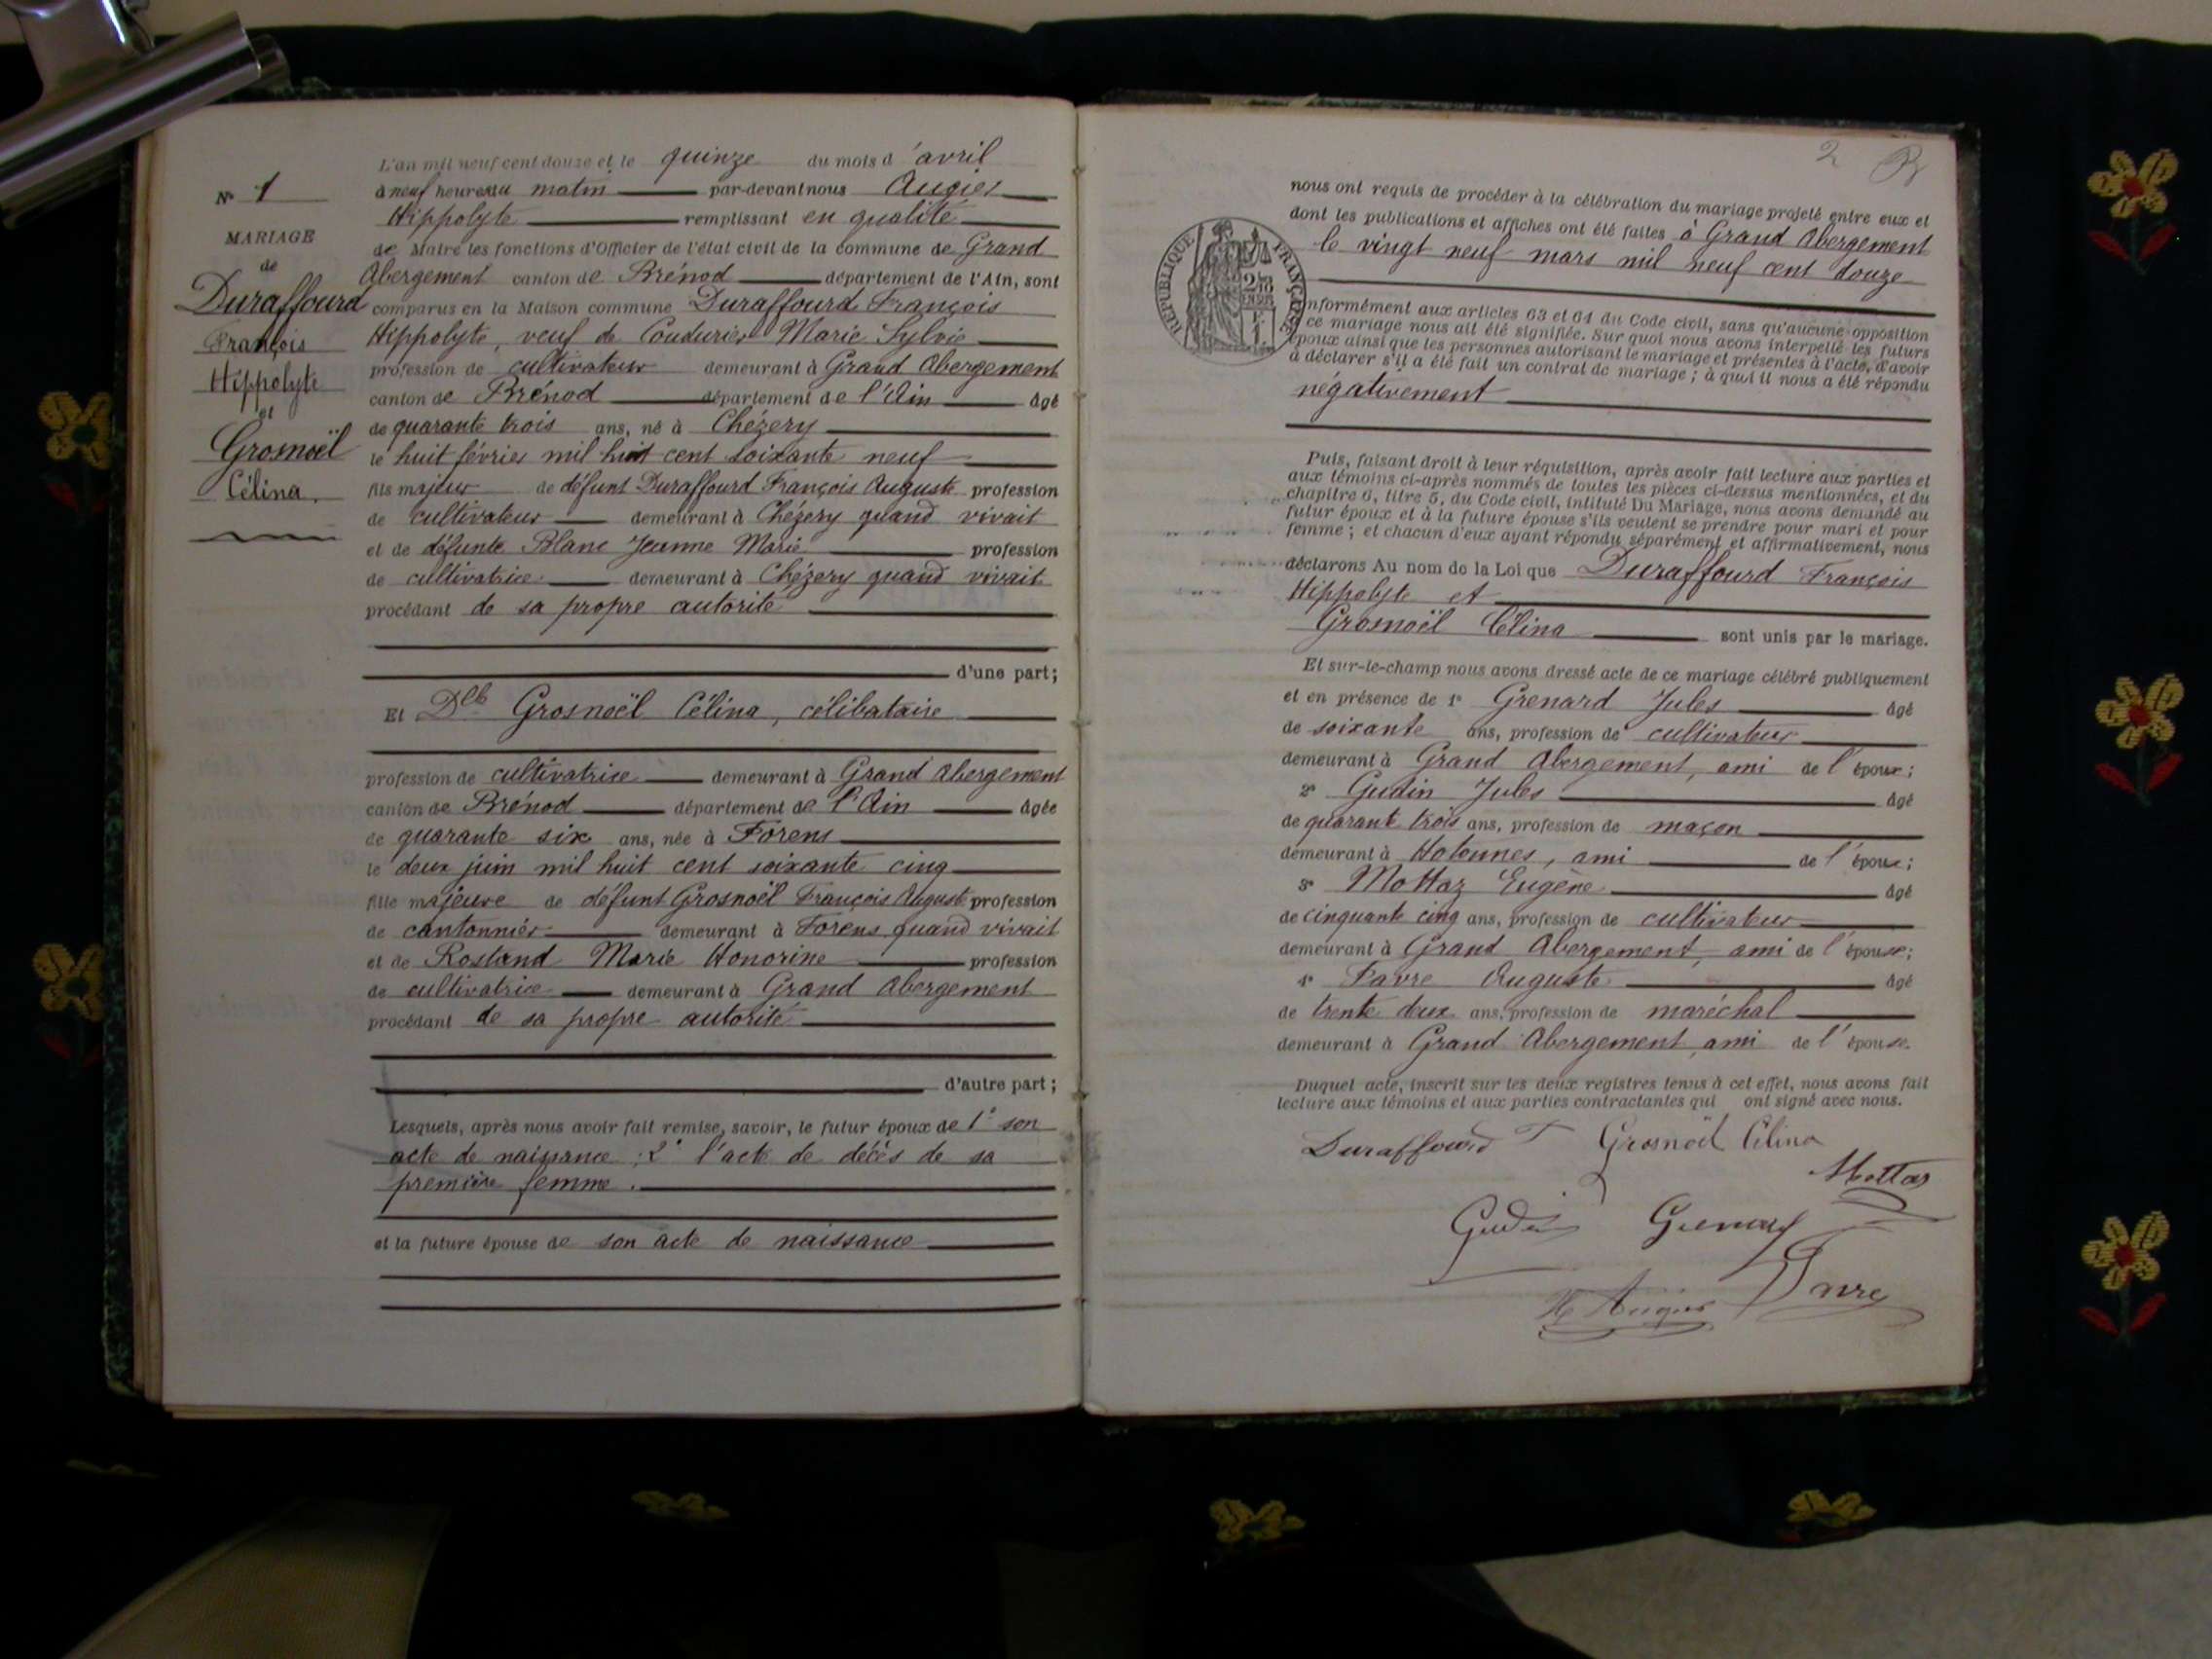 N° 1
MARIAGE
de
Duraffourd
François
Hippolyte
et
Grosnoël
Célina.
L'an mil neuf cent douze et le quinze du mois d'avril
à neuf heures du matin par-devant nous Augier
Hippolyte remplissant en qualité
de Maire les fonctions d'Officier de l'état civil de la commune de Grand
Abergement canton de Brénod département de l'Ain, sont
comparus en la Maison commune Duraffourd François
Hippolyte, veuf de Coudurier Marie Sylvie
profession de cultivateur demeurant à Grand Abergement
canton de Brénod département de l'Ain âgé
de quarante trois ans, né à Chézery
le huit février mil huit cent soixante neuf
fils majeur de défunt Duraffourd François Auguste profession
de cultivateur demeurant à Chézery quand vivait
et de défunte Blanc Jeanne Marie profession
de cultivatrice demeurant à Chézery quand vivait
procédant de sa propre autorité
d'une part;
Et Dlle Grosnoël Célina, célibataire
profession de cultivatrice demeurant à Grand Abergement
canton de Brénod département de l'Ain âgée
de quarante six ans, née à Forens
le deux juin mil huit cent soixante cinq
fille majeure de défunt Grosnoël François Auguste profession
de cantonnier demeurant à Forens quand vivait
et de Rostand Marie Honorine profession
de cultivatrice demeurant à Grand Abergement
procédant de sa propre autorité
d'autre part;
Lesquels, après nous avoir fait remise, savoir, le futur époux de 1° son
acte de naissance ; 2° l'acte de décès de sa
première femme.
et la future épouse de son acte de naissance
2
nous ont requis de procéder à la célébration du mariage projeté entre eux et
dont les publications et affiches ont été faites à Grand Abergement
le vingt neuf mars mil neuf cent douze
RÉPUBLIQUE FRANÇAISE
nformément aux articles 63 et 64 du Code civil, sans qu'aucune opposition
ce mariage nous ait été signifiée. Sur quoi nous avons interpellé les futurs
époux ainsi que les personnes autorisant le mariage et présentes à l'acte, d'avoir
à déclarer s'il a été fait un contrat de mariage ; à quoi il nous a été répondu
négativement
Puis, faisant droit à leur réquisition, après avoir fait lecture aux parties et
aux témoins ci-après nommés de toutes les pièces ci-dessus mentionnées, et du
chapitre 6, titre 5, du Code civil, intitulé Du Mariage, nous avons demandé au
futur époux et à la future épouse s'ils veulent se prendre pour mari et pour
femme ; et chacun d'eux ayant répondu séparément et affirmativement, nous
déclarons Au nom de la Loi que Duraffourd François
Hippolyte et
Grosnoël Célina sont unis par le mariage.
Et sur-le-champ nous avons dressé acte de ce mariage célébré publiquement
et en présence de 1° Grenard Jules âgé
de soixante ans, profession de cultivateur
demeurant à Grand Abergement, ami de l'époux;
2° Gudin Jules âgé
de quarante trois ans, profession de maçon
demeurant à Hotonnes, ami de l'époux;
3° Mottaz Eugène âgé
de cinquante cinq ans, profession de cultivateur
demeurant à Grand Abergement, ami de l'épouse;
4° Favre Auguste âgé
de trente deux ans, profession de maréchal
demeurant à Grand Abergement, ami de l'épouse.
Duquel acte, inscrit sur les deux registres tenus à cet effet, nous avons fait
lecture aux témoins et aux parties contractantes qui ont signé avec nous.
Duraffourd F Grosnoël Célina
Mottaz
Gudin Grenard
H Augier Favre